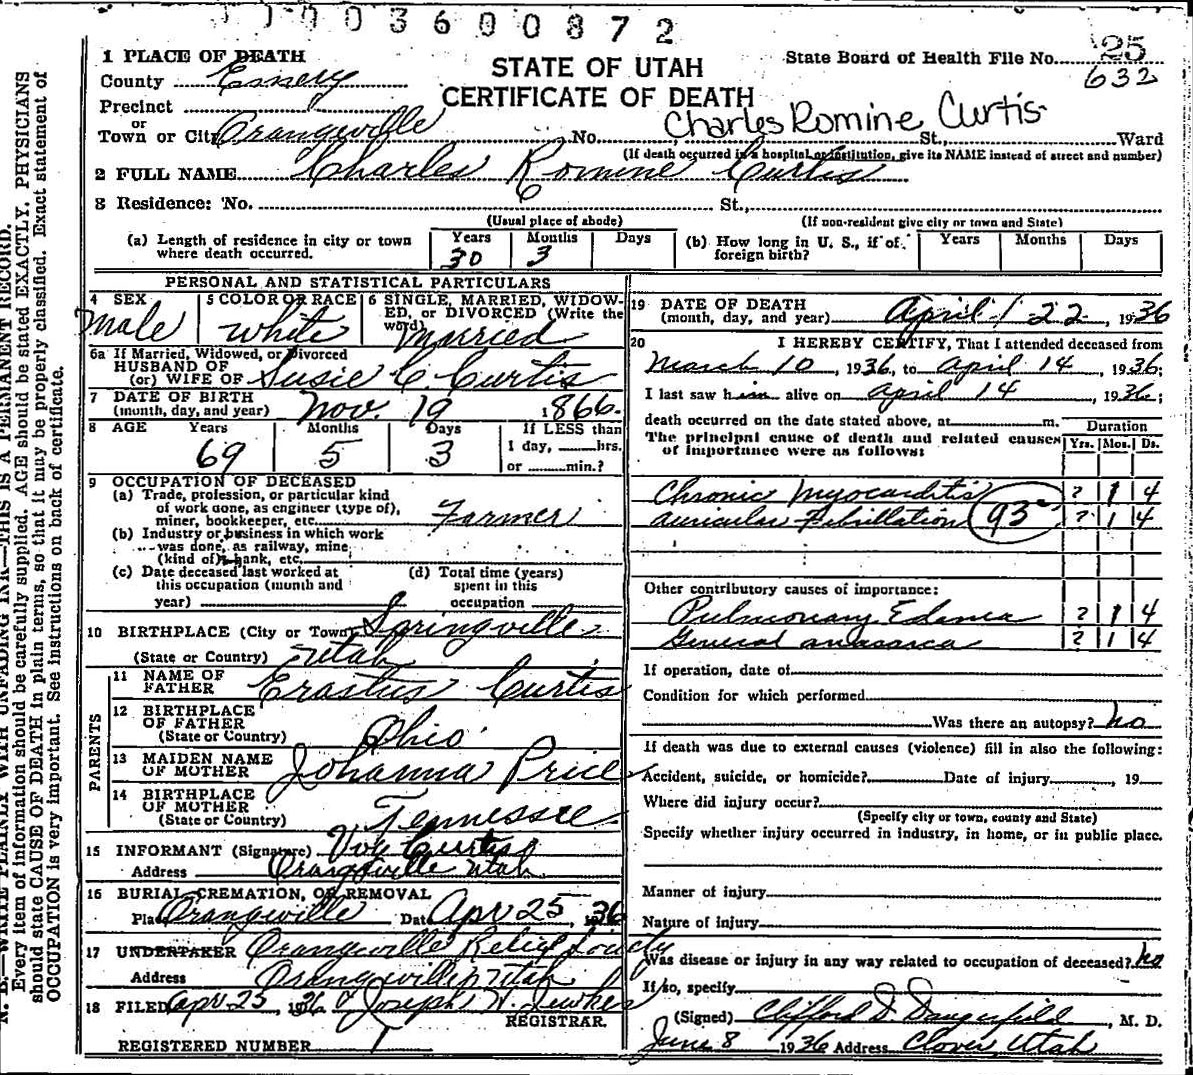 003600872
1 PLACE OF DEATH
State Board of Health File No. 25
632
County Emery
STATE OF UTAH
CERTIFICATE OF DEATH
Precinct
or
Town or City Orangeville No. St., Ward
Charles Romine Curtis
(If death occurred in a hospital or institution, give its NAME instead of street and number)
2 FULL NAME Charles Romine Curtis
3 Residence: No. St.,
(Usual place of abode) (If non-resident give city or town and State)
(a) Length of residence in city or town where death occurred. Years 30 Months 3 Days
(b) How long in U. S., if of foreign birth? Years Months Days
PERSONAL AND STATISTICAL PARTICULARS
4 SEX Male
5 COLOR OR RACE white
6 SINGLE, MARRIED, WIDOWED, or DIVORCED (Write the word) Married
6a If Married, Widowed, or Divorced
HUSBAND OF
(or) WIFE OF Susie C. Curtis
7 DATE OF BIRTH
(month, day, and year) Nov. 19 1866
8 AGE Years 69 Months 5 Days 3 If LESS than
1 day, hrs.
or min.?
9 OCCUPATION OF DECEASED
(a) Trade, profession, or particular kind
of work done, as engineer (type of),
miner, bookkeeper, etc. Farmer
(b) Industry or business in which work
was done, as railway, mine
(kind of) bank, etc.
(c) Date deceased last worked at
this occupation (month and
year)
(d) Total time (years)
spent in this
occupation
10 BIRTHPLACE (City or Town) Springville
(State or Country) Utah
PARENTS
11 NAME OF
FATHER Erastus Curtis
12 BIRTHPLACE
OF FATHER
(State or Country) Ohio
13 MAIDEN NAME
OF MOTHER Johanna Price
14 BIRTHPLACE
OF MOTHER
(State or Country) Tennessee
15 INFORMANT (Signature) Curtis
Address Orangeville Utah
16 BURIAL, CREMATION, OR REMOVAL
Place Orangeville Date Apr 25, 1936
17 UNDERTAKER Orangeville Relief Society
Address Orangeville Utah
18 FILED Apr 25 1936 Joseph W.
REGISTRAR.
REGISTERED NUMBER 1
19 DATE OF DEATH
(month, day, and year) April 22, 1936
20 I HEREBY CERTIFY, That I attended deceased from
March 10, 1936, to April 14, 1936;
I last saw him alive on April 14, 1936;
death occurred on the date stated above, at m.
The principal cause of death and related causes
of importance were as follows:
Duration
Yrs. Mos. Ds.
Chronic Myocarditis ? 1 4
Auricular Fibrillation ? 1 4
93c
Other contributory causes of importance:
Pulmonary Edema ? 1 4
General anasarca ? 1 4
If operation, date of
Condition for which performed
Was there an autopsy? no
If death was due to external causes (violence) fill in also the following:
Accident, suicide, or homicide? Date of injury, 19
Where did injury occur?
(Specify city or town, county and State)
Specify whether injury occurred in industry, in home, or in public place.
Manner of injury
Nature of injury
Was disease or injury in any way related to occupation of deceased? no
If so, specify
(Signed) Clifford D. Dangerfield, M. D.
June 8 1936 Address Utah
N. B.—WRITE PLAINLY WITH UNFADING INK—THIS IS A PERMANENT RECORD.
Every item of information should be carefully supplied. AGE should be stated EXACTLY. PHYSICIANS
should state CAUSE OF DEATH in plain terms, so that it may be properly classified. Exact statement of
OCCUPATION is very important. See instructions on back of certificate.